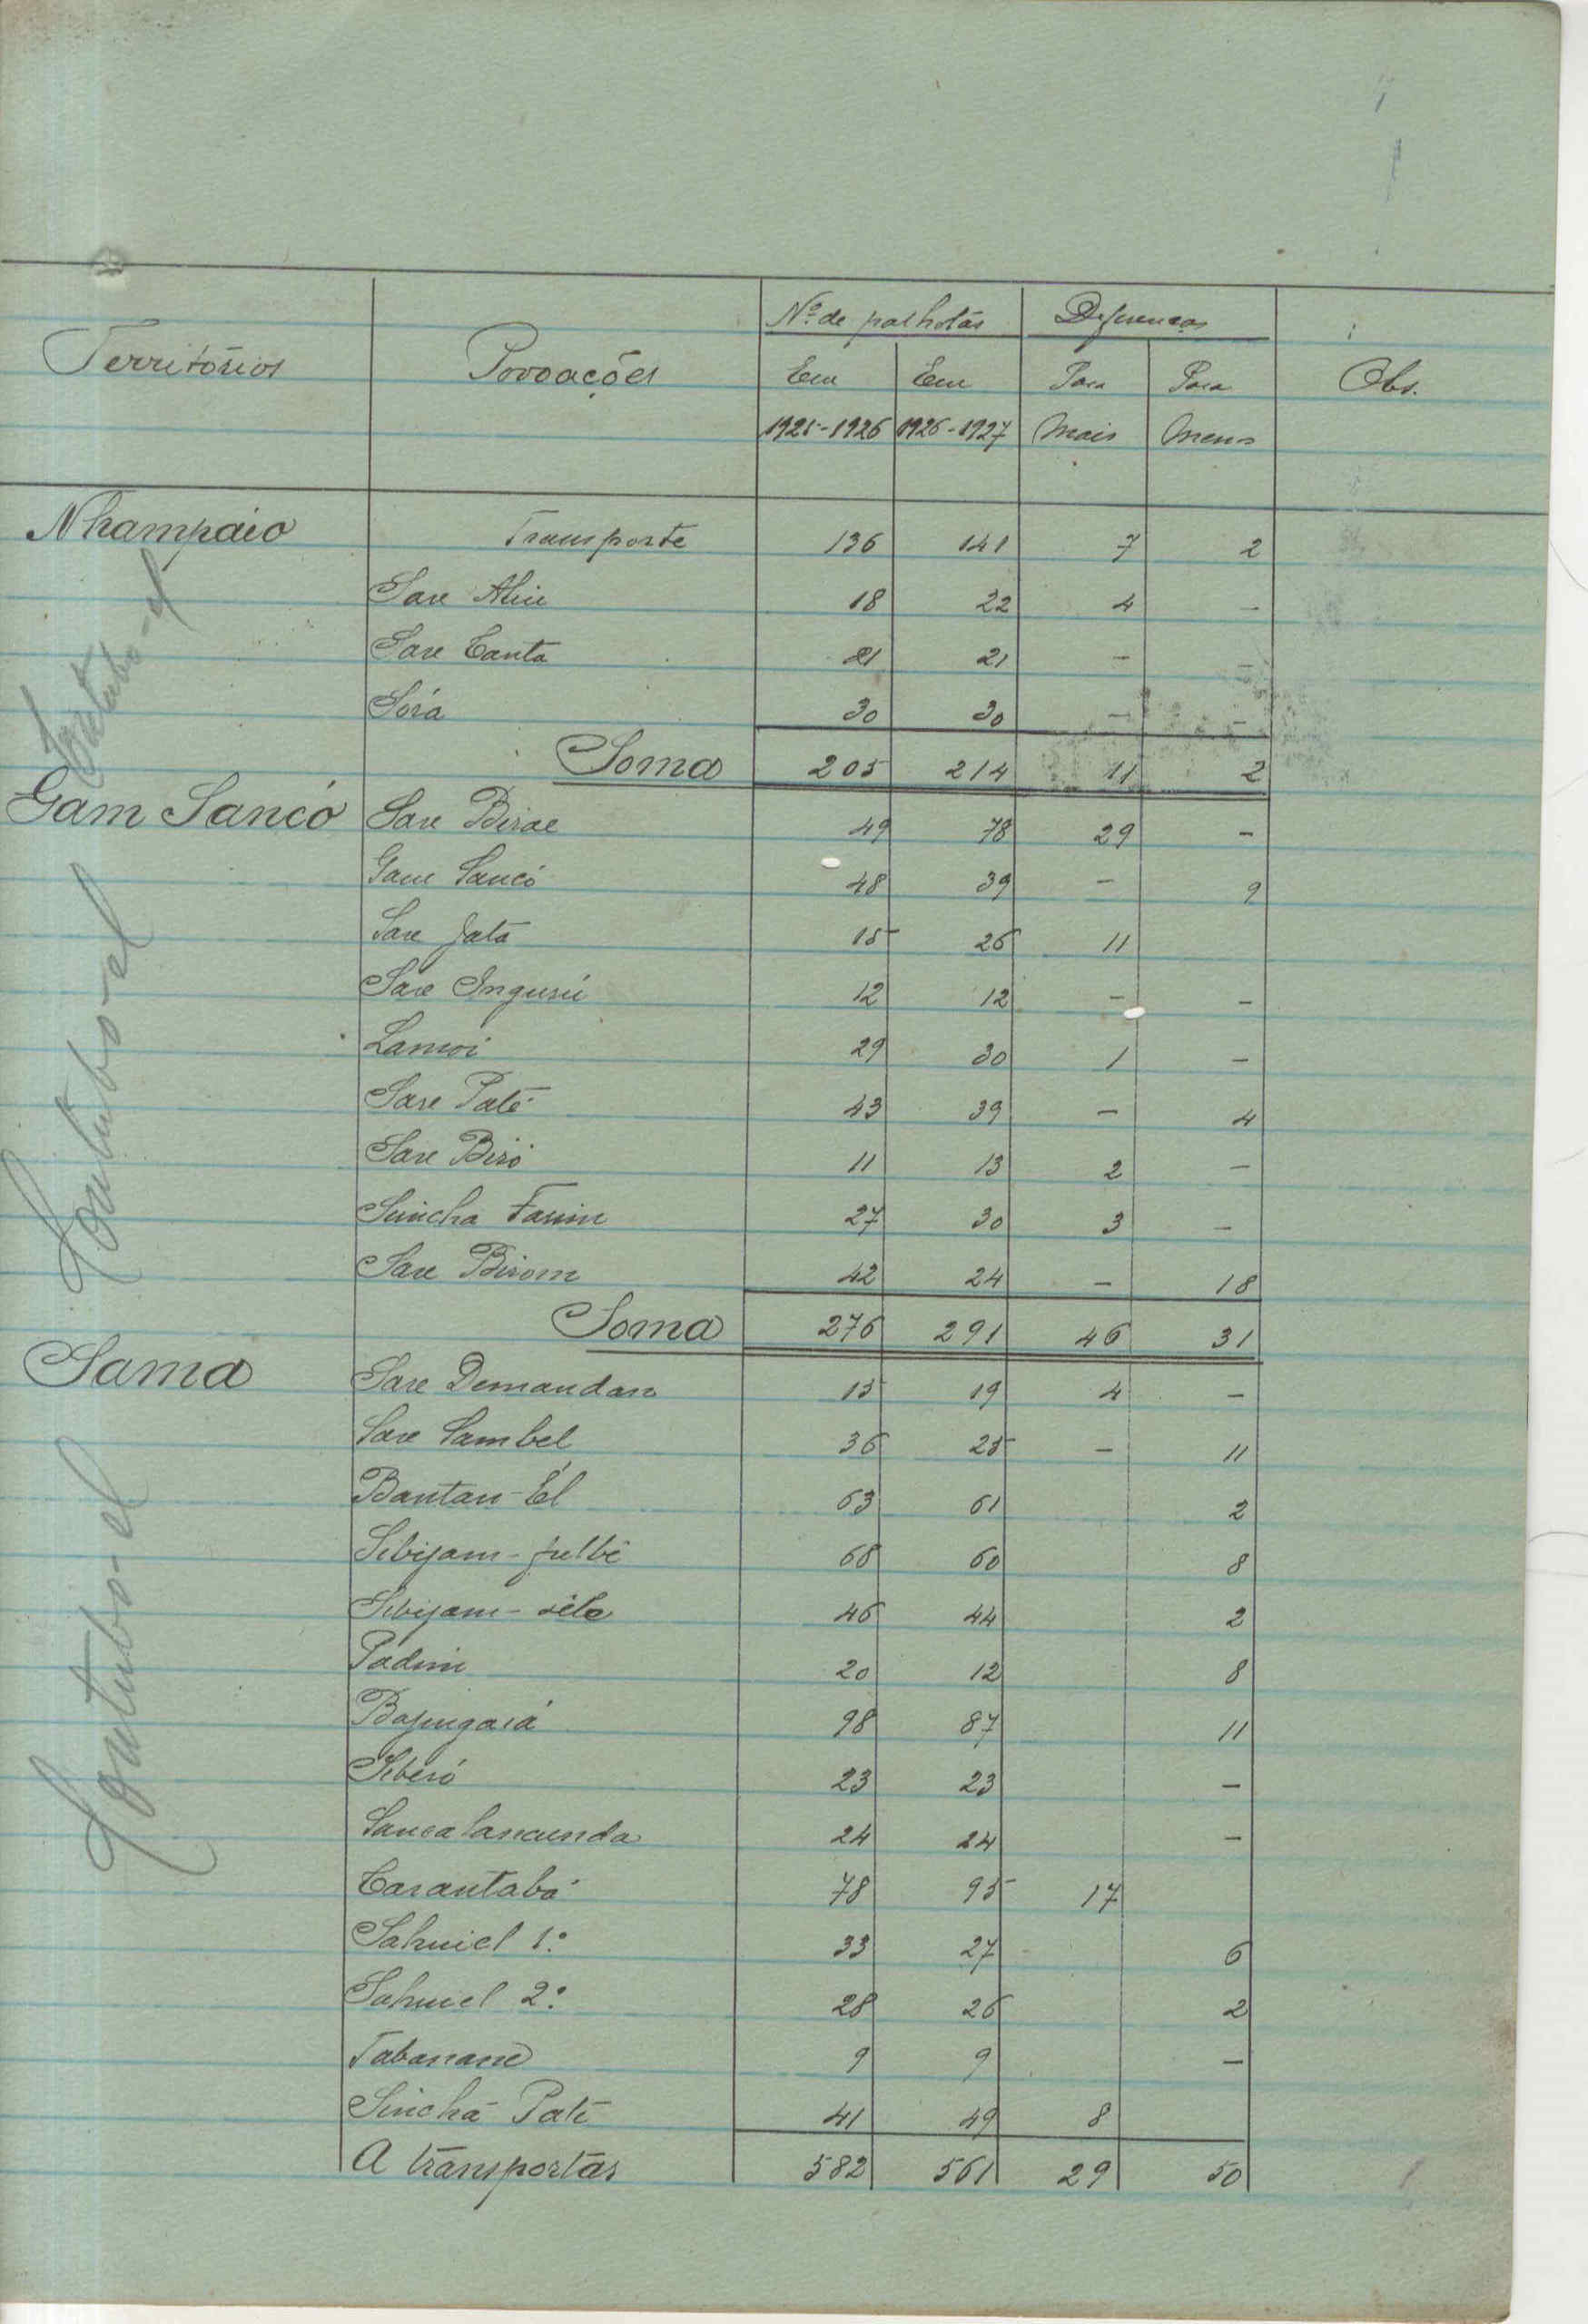 Territórios Povoações Nº de palhotas Diferenças Obs.
Em Em Para Para
1925-1926 1926-1927 Mais Menos
Nhampaio Transporte 136 141 7 2
Sare Aliu 18 22 4 -
Sare Canta 21 21 - -
Sórá 30 30 - -
Soma 205 214 11 2
Contubo-el
Gam Sancó Sare Birae 49 78 29 -
Gam Sancó 48 39 - 9
Sare Jata 15 26 11
Sare Ingurú 12 12 - -
Lamoi 29 30 1 -
Sare Paté 43 39 - 4
Sare Biró 11 13 2 -
Sincha Famin 27 30 3 -
Sare Birom 42 24 - 18
Soma 276 291 46 31
Contubo-el
Sama Sare Demandan 15 19 4 -
Sare Sambel 36 25 - 11
Bantan-Él 63 61 2
Sibijam-fulbé 68 60 8
Sibijam- 46 44 2
Padim 20 12 8
Bajingará 98 87 11
Siberó 23 23 -
Sancalancunda 24 24 -
Carantabá 78 95 17
Sahuiel 1º 33 27 6
Sahuiel 2º 28 26 2
Tabanane 9 9 -
Sinchá Paté 41 49 8
A transportar 582 561 29 50
Contubo-el